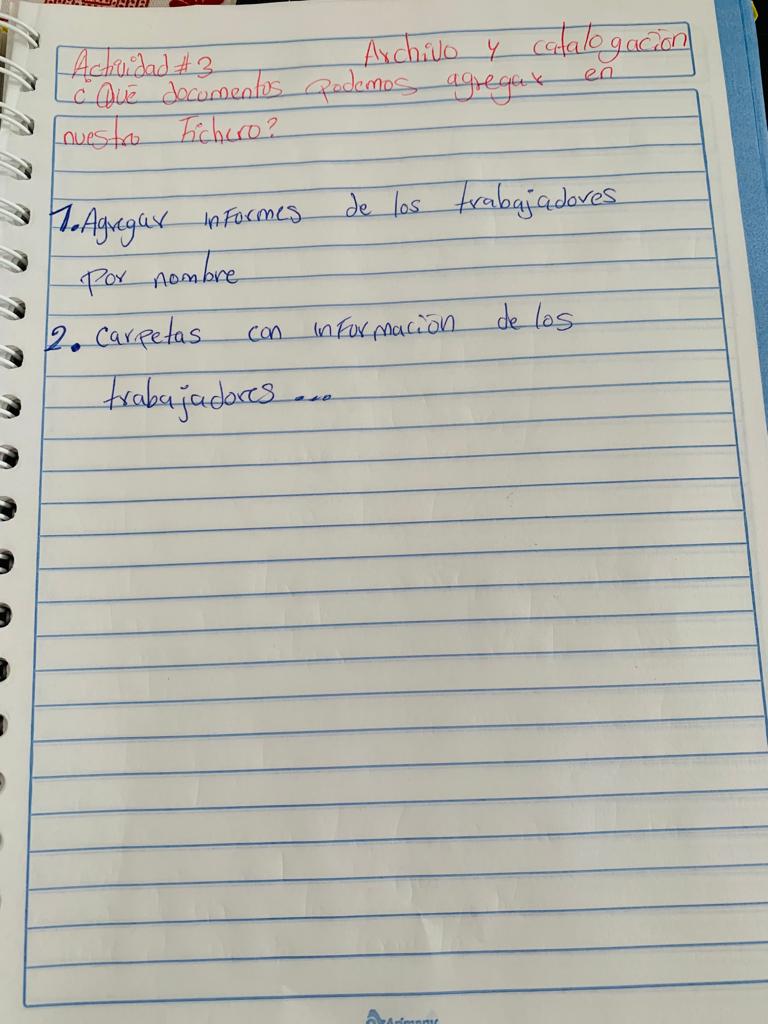 Actividad #3 Archivo y catalogación
¿Qué documentos podemos agregar en
nuestro Fichero?
1. Agregar informes de los trabajadores
por nombre
2. carpetas con información de los
trabajadores ...
Arimany